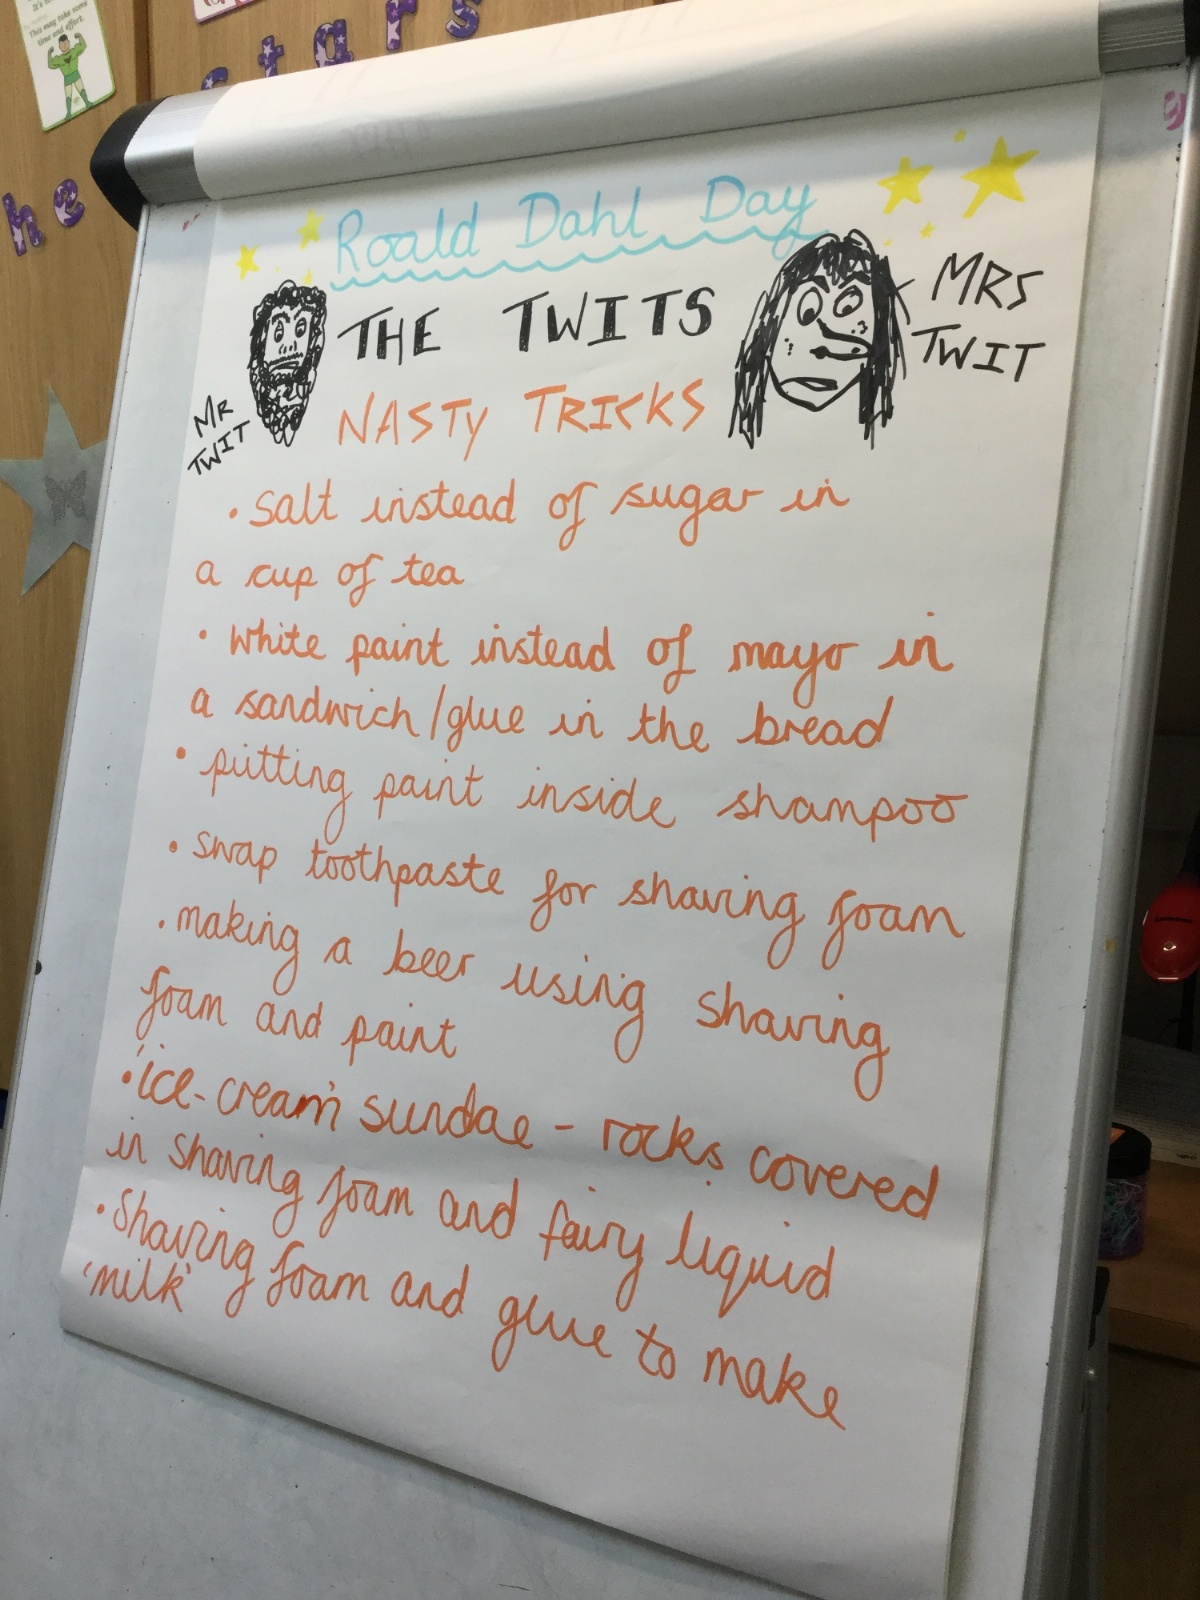 It's
This may take some
time and effort.
stars
he
Roald Dahl Day
THE TWITS
MRS
TWIT
MR
TWIT
NASTY TRICKS
• Salt instead of sugar in
a cup of tea
• white paint instead of mayo in
a sandwich/glue in the bread
• putting paint inside shampoo
• swap toothpaste for shaving foam
• making a beer using shaving
foam and paint
• 'ice-cream' sundae - rocks covered
in shaving foam and fairy liquid
• Shaving foam and glue to make
'milk'